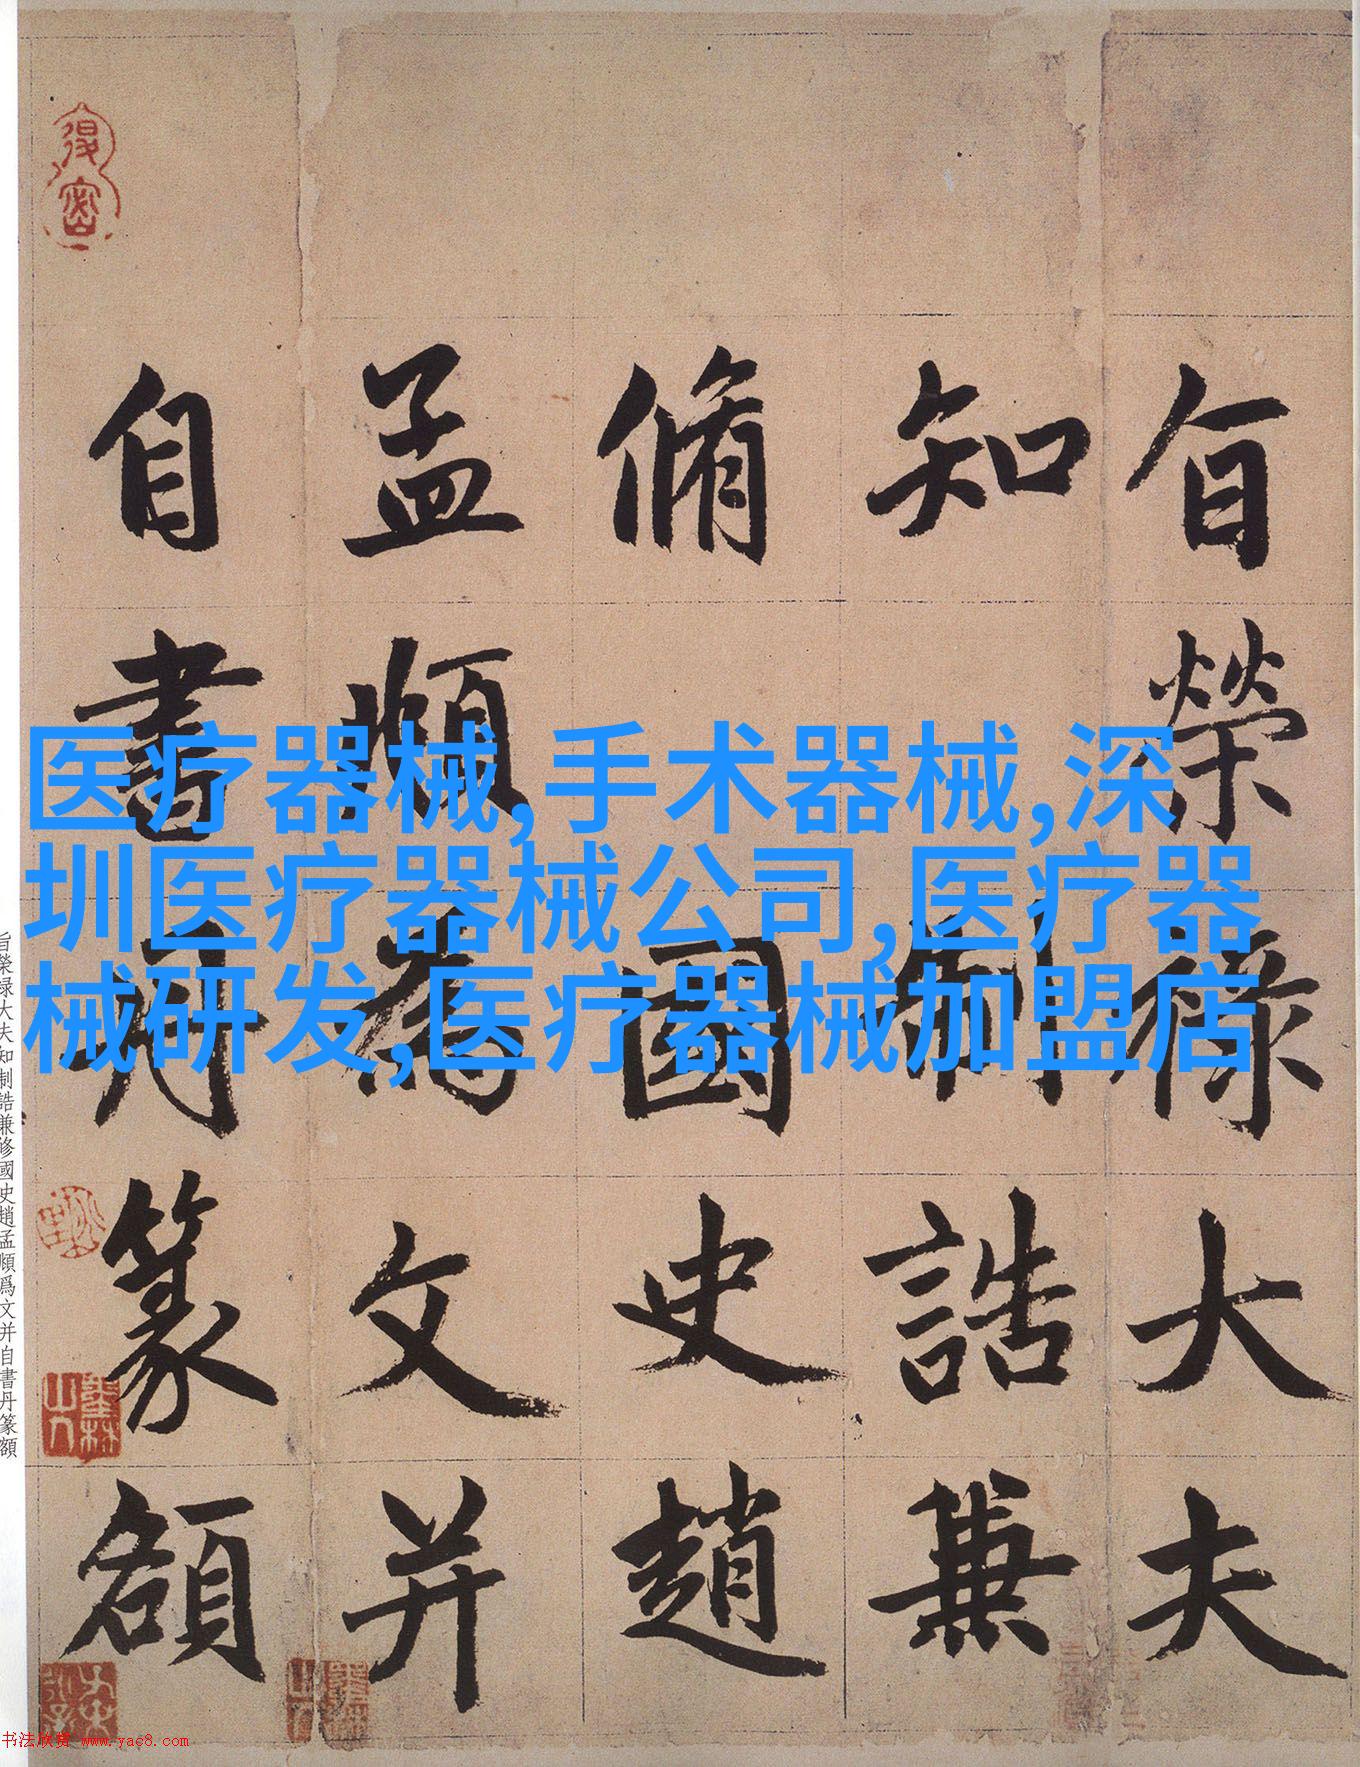 旨榮祿大夫
知制誥兼
脩國史趙
孟頫為文并
自書丹篆額
医疗器械,手术器械,深
圳医疗器械公司,医疗器
械研发,医疗器械加盟店
旨榮祿大夫知制誥兼修國史趙孟頫爲文并自書丹篆額
书法欣赏 www.yac8.com